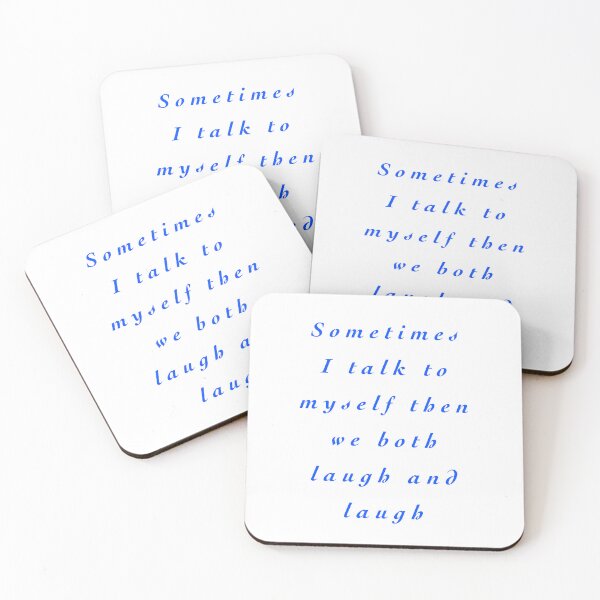 Sometimes
I talk to
myself then
Sometimes
I talk to
myself then
we both
Sometimes
I talk to
myself then
we both
laugh
Sometimes
I talk to
myself then
we both
laugh and
laugh